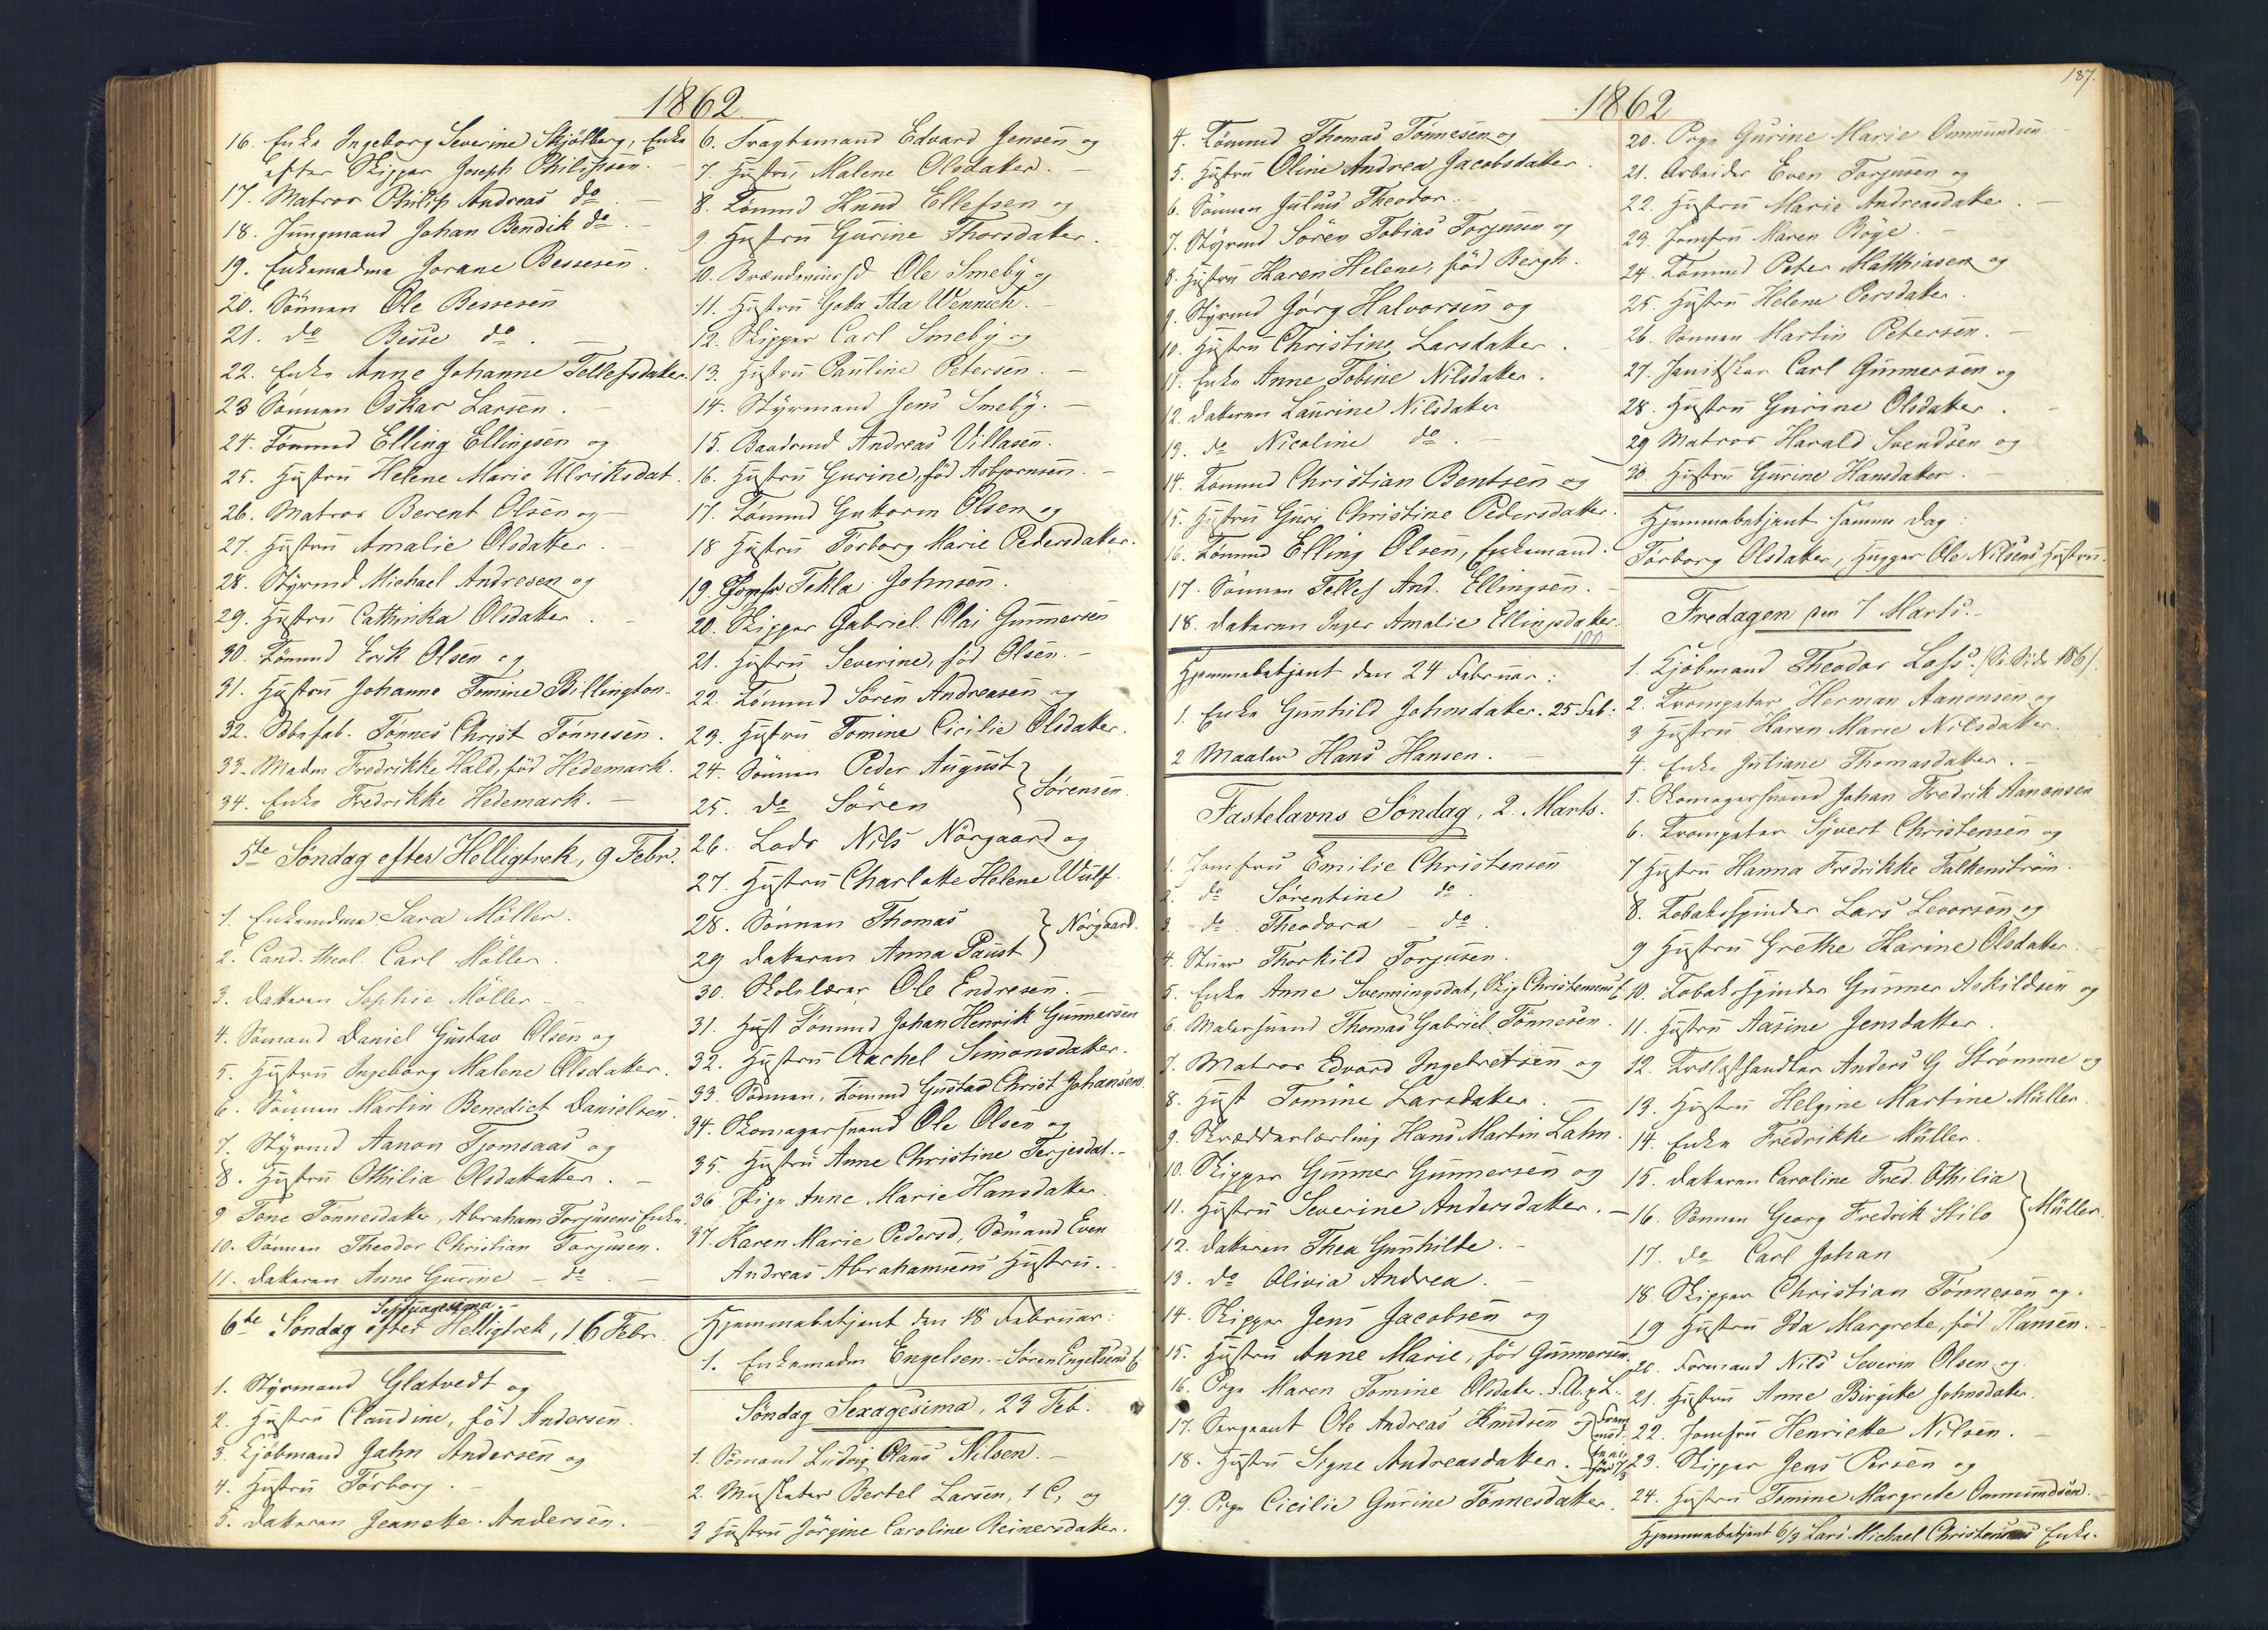 1862
16. Enke Ingeborg Severine Skjølberg, Enke
efter Skipper Joseph Philipsen.
17. Matros Philip Andreas do
18. Jungmand Johan Bendik do.
19. Enkemadme Gorane Bessesen.
20. Sønnen Ole Bessesen
21. do Besse do.
22. Enke Anne Johanne Tellefsdatter.
23 Sønnen Oskar Larsen.
24. Tømmd Elling Ellingsen og
25. Hustru Helene Marie Ulriksdat.
26. Matros Berent Olsen og
27. Hustru Amalie Olsdatter.
28. Styrmd Michael Andresen og
29. Hustru Cathinka Olsdatter.
30. Tømmd Erik Olsen og
31. Hustru Johanne Tomine Billington.
32. Tønnes Christ Tønnesen.
33. Madm Fredrikke Hald, fød Hedemark.
34. Enke Fredrikke Hedemark.
5te Søndag efter Helligtrek, 9 Febr.
1. Enkemdme Sara Møller.
2. Cand. theol. Carl Møller.
3. Datteren Sophie Møller
4. Sømand Daniel Gustav Olsen og
5. Hustru Ingeborg Malene Olsdatter.
6. Sønnen Martin Benedict Danielsen.
7. Styrmd Aanon Tjomsaas og
8. Hustru Othilia Olsdattatter.
9 Tone Tønnesdatter, Abraham Torjusens Enke.
10. Sønnen Theodor Christian Torjusen.
11. Datteren Anne Gurine do.
Septuagesima.
6te Søndag efter Helligtrek, 16 Febr.
1. Styrmand Glatvedt og
2. Hustru Claudine, fød Andersen.
3 Kjøbmand Jahn Andersen og
4. Hustru Torborg.
5. Datteren Jeanette Andersen.
6. Fragtemand Edvard Jensen og
7. Hustru Malene Olsdatter.
8. Tømmd Knud Ellefsen og
9 Hustru Gurine Thorsdatter.
10. Ole Smeby og
11. Hustru Ida Wennich.
12. Skipper Carl Smeby og
13. Hustru Pauline Petersen.
14. Styrmand Jens Smeby.
15. Baadsmd Andreas Villasen.
16. Hustru Gurine, fød Asbjørnsen.
17. Tømmd Guttorm Olsen og
18 Hustru Torborg Marie Pedersdatter.
19. Jomfr Tekla Johnsen.
20. Skipper Gabriel Olai Gunnersen
21. Hustru Severine, fød Olsen.
22. Tømmd Søren Andreasen og
23. Hustru Tomine Cicilie Olsdatter.
24. Sønnen Peder August } Sørensen.
25. do Søren
26. Lods Nils Nørgaard og
27. Hustru Charlotte Helene Wulf.
28. Sønnen Thomas } Nørgaard.
29 Datteren Anna Paust
30. Skolelærer Ole Endresen.
31. Hust Tømmd Johan Henrik Gunnersen
32. Hustru Rachel Simonsdatter.
33. Sønnen, Tømmd Gustav Christ Johansen.
34. Skomagersvend Ole Olsen og
35. Hustru Anne Christine Terjesdat.
36 Pige Anne Marie Hansdatter.
37. Karen Marie Pedersd, Sømand Even
Andreas Abrahamsens Hustru.
Hjemmebetjent den 18 Februar:
1. Enkemadm Engelsen. Søren Engelsens E
Søndag Sexagesima, 23 Feb.
1. Sømand Ludvig Olaus Nilsen.
2. Musketer Bertel Larsen, 1 C, og
3 Hustru Jørgine Caroline Reinersdatter.
1862
187.
4. Tømmd Thomas Tønnesen og
5. Hustru Oline Andrea Jacobsdatter.
6. Sønnen Julius Theodor.
7. Styrmd Søren Tobias Torjusen og
8. Hustru Karen Helene, fød Bergh.
9. Styrmd Jørg Halvorsen og
10. Hustru Christine Larsdatter.
11. Enke Anne Tobine Nilsdatter.
12. Datteren Laurine Nilsdatter
13. do Nicoline do.
14. Tømmd Christian Bentsen og
15. Hustru Guri Christine Pedersdatter.
16. Tømmd Elling Olsen, Enkemand.
17. Sønnen Tellef And. Ellingsen.
18. Datteren Inger Amalie Ellingsdatter.
100
Hjemmebetjent den 24 Februar:
1. Enke Gunhild Johnsdatter. 25 Feb:
2 Maaler Hans Hansen.
Fastelavns Søndag, 2. Marts.
1. Jomfru Emilie Christensen
2. do Sørentine do
3. do Theodora do.
4. Stuer Thorkild Torjusen.
5. Enke Anne Svenningsdat, Skip Christensens E
6. Malersvend Thomas Gabriel Tønnesen.
7. Matros Edvard Ingebretsen og
8. Hust Tomine Larsdatter.
9. Skrædderlærling Hans Martin Lahn.
10. Skipper Gunner Gunnersen og
11. Hustru Severine Andersdatter.
12. Datteren Thea Gunhilde.
13. do Olivia Andrea.
14. Skipper Jens Jacobsen og
15. Hustru Anne Marie, fød Gunnersen.
16. Pige Maren Tomine Olsdatter.
17. Sergeant Ole Andreas Knudsen og
18. Hustru Signe Andreasdatter.
19. Pige Cicilie Gurine Tønnesdatter.
20. Pige Gurine Marie Ommundsen.
21. Arbeider Even Torjusen og
22. Hustru Marie Andreasdatter.
23. Jomfru Maren Røge.
24. Tømmd Peter Matthiasen og
25. Hustru Helene Persdatter.
26. Sønnen Martin Petersen.
27. Janitskar Carl Gunnersen og
28. Hustru Gurine Olsdatter.
29 Matros Harald Svendsen og
30. Hustru Gurine Hansdatter.
Hjemmebetjent samme Dag:
Torborg Olsdatter, Hugger Ole Nilsens Hustru.
Fredagen den 7 Marts.
1. Kjøbmand Theodor Lass. /Se Side 186/.
2. Trompeter Herman Aanonsen og
3 Hustru Karen Marie Nilsdatter.
4. Enke Juliane Thomasdatter.
5. Skomagersvend Johan Fredrik Aanonsen
6. Trompeter Syvert Christensen og
7 Hustru Hanna Fredrikke Falkenstrøm.
8. Tobaksspinder Lars Levorsen og
9 Hustru Grethe Karine Olsdatter.
10. Tobaksspinder Gunner Askildsen og
11. Hustru Aasine Jensdatter.
12. Trælasthandler Anders G Strømme og
13. Hustru Helgine Martine Müller.
14. Enke Fredrikke Müller.
15. Datteren Caroline Fred. Othilia
16. Sønnen Georg Fredrik Stilo } Müller.
17. do Carl Johan
18. Skipper Christian Tønnesen og.
19 Hustru Ida Margrete, fød Hansen.
20. Formand Nils Severin Olsen og
21. Hustru Anne Birgitte Johnsdatter.
22. Jomfru Henriette Nilsen.
23. Skipper Jens Persen og
24. Hustru Tomine Margrete Ommundsen.
Hjemmebetjent 6/3 Lars Michael Christensens Enke.